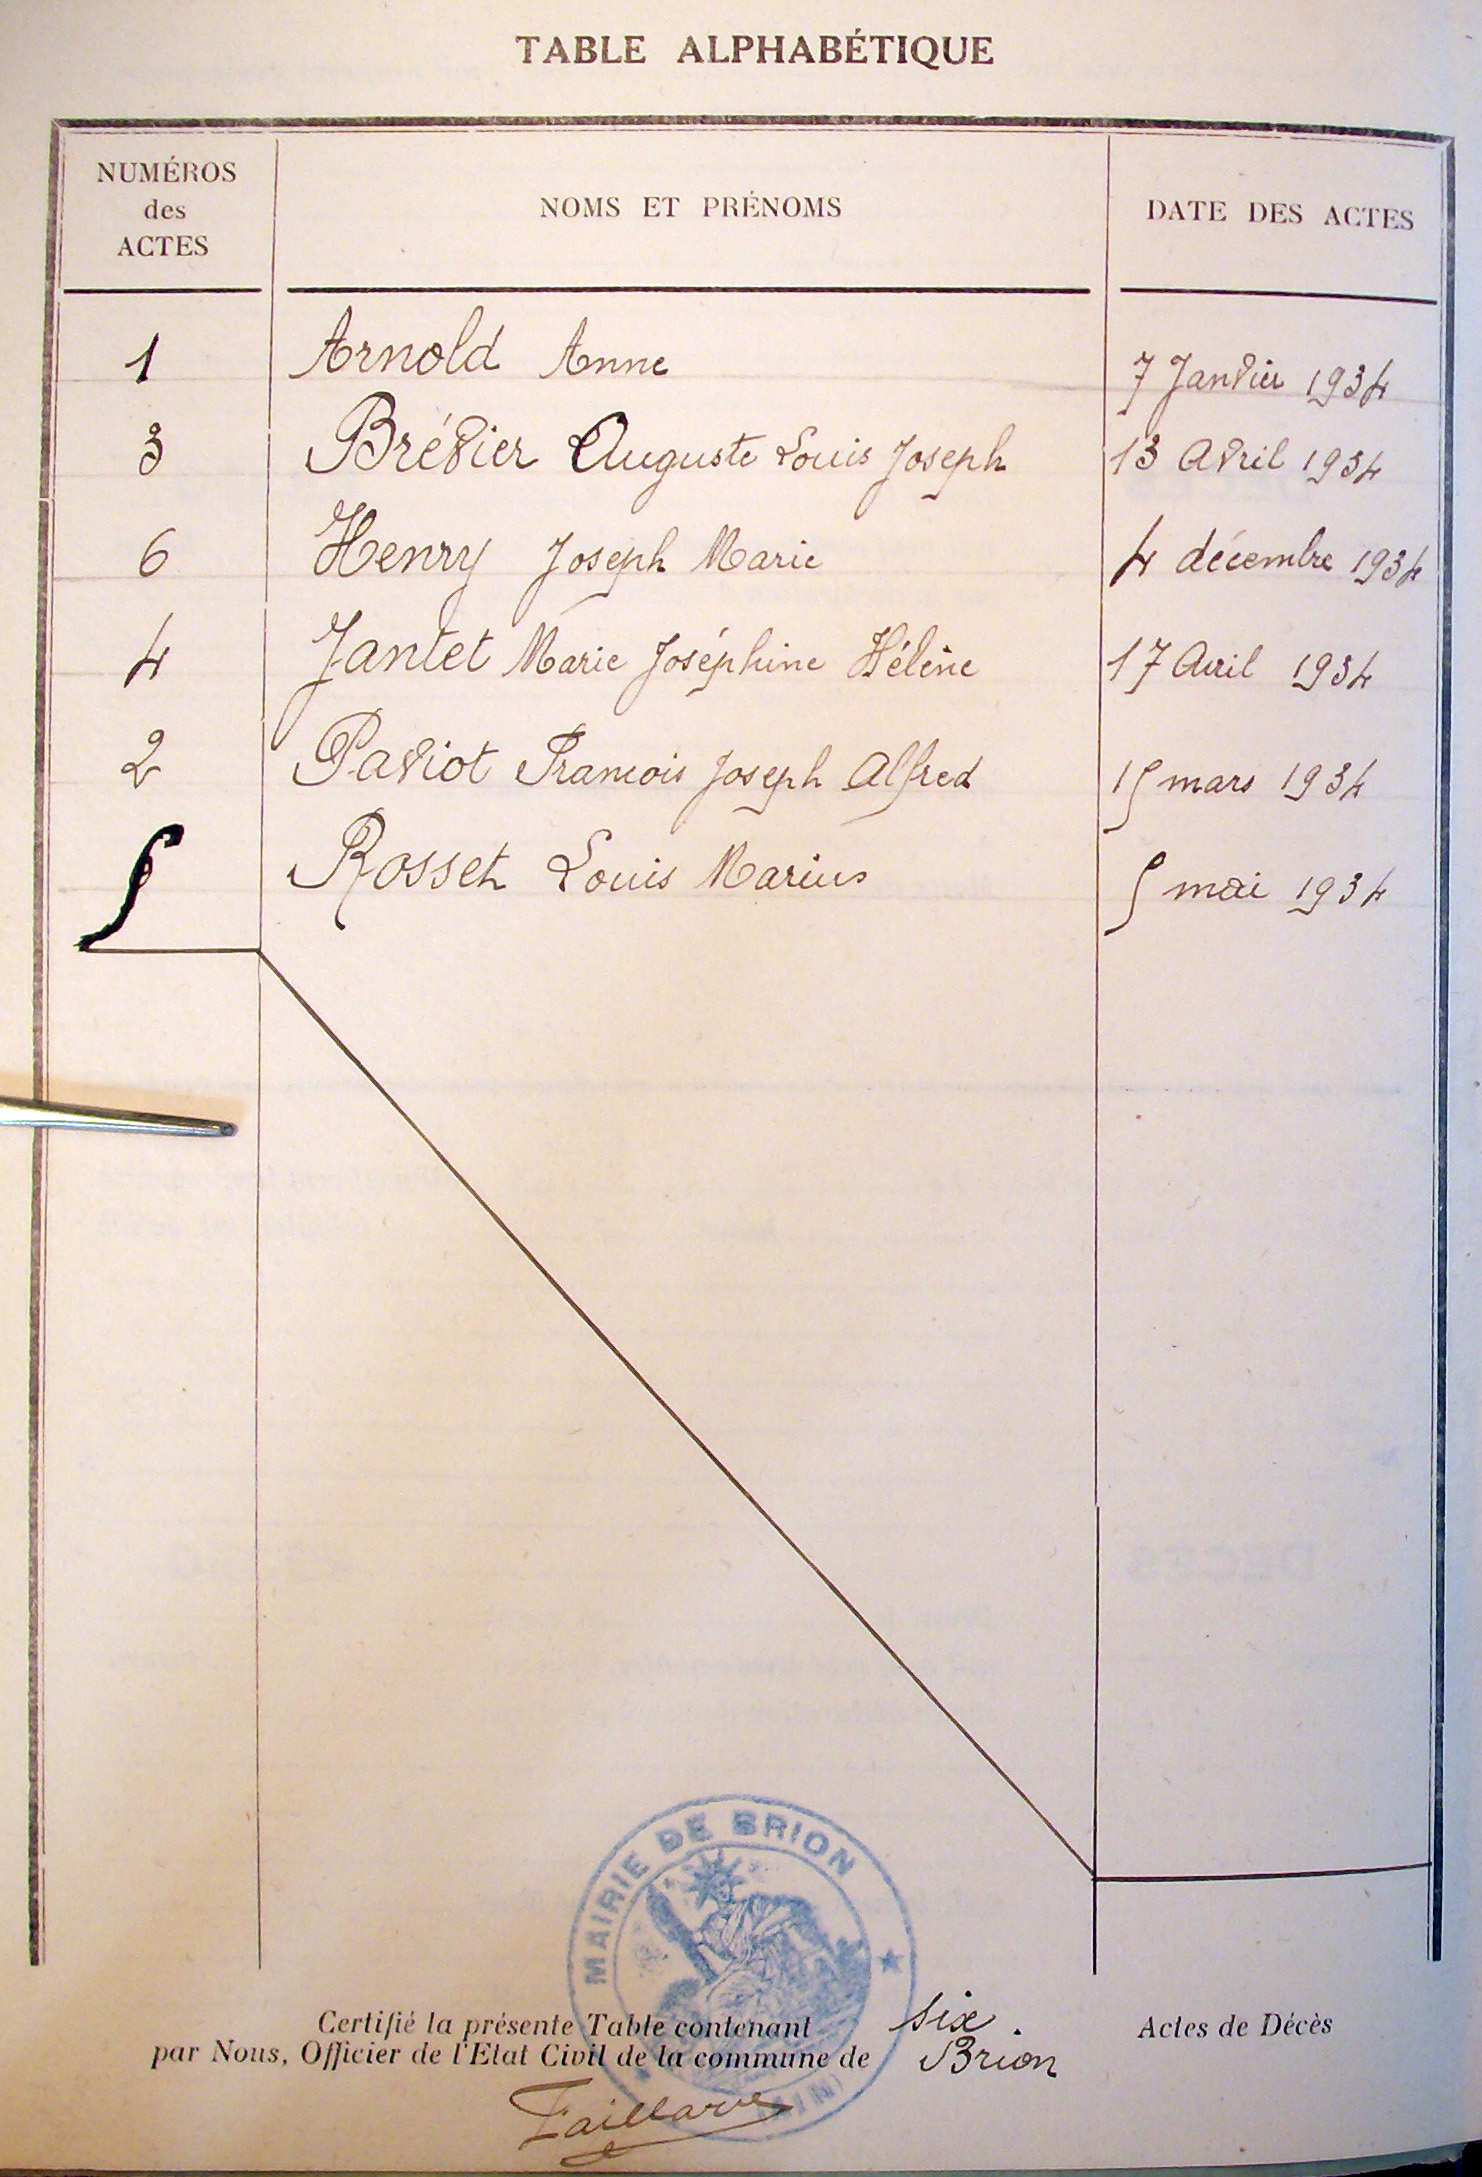 TABLE ALPHABÉTIQUE
NUMÉROS
des
ACTES
NOMS ET PRÉNOMS
DATE DES ACTES
1 Arnold Anne 7 Janvier 1934
3 Brévier Auguste Louis Joseph 13 Avril 1934
6 Henry Joseph Marie 4 décembre 1934
4 Jantet Marie Joséphine Hélène 17 Avril 1934
2 Paviot Francois Joseph Alfred 15 mars 1934
5 Rosset Louis Marius 5 mai 1934
MAIRIE DE BRION
(AIN)
Certifié la présente Table contenant six Actes de Décès
par Nous, Officier de l'Etat Civil de la commune de Brion